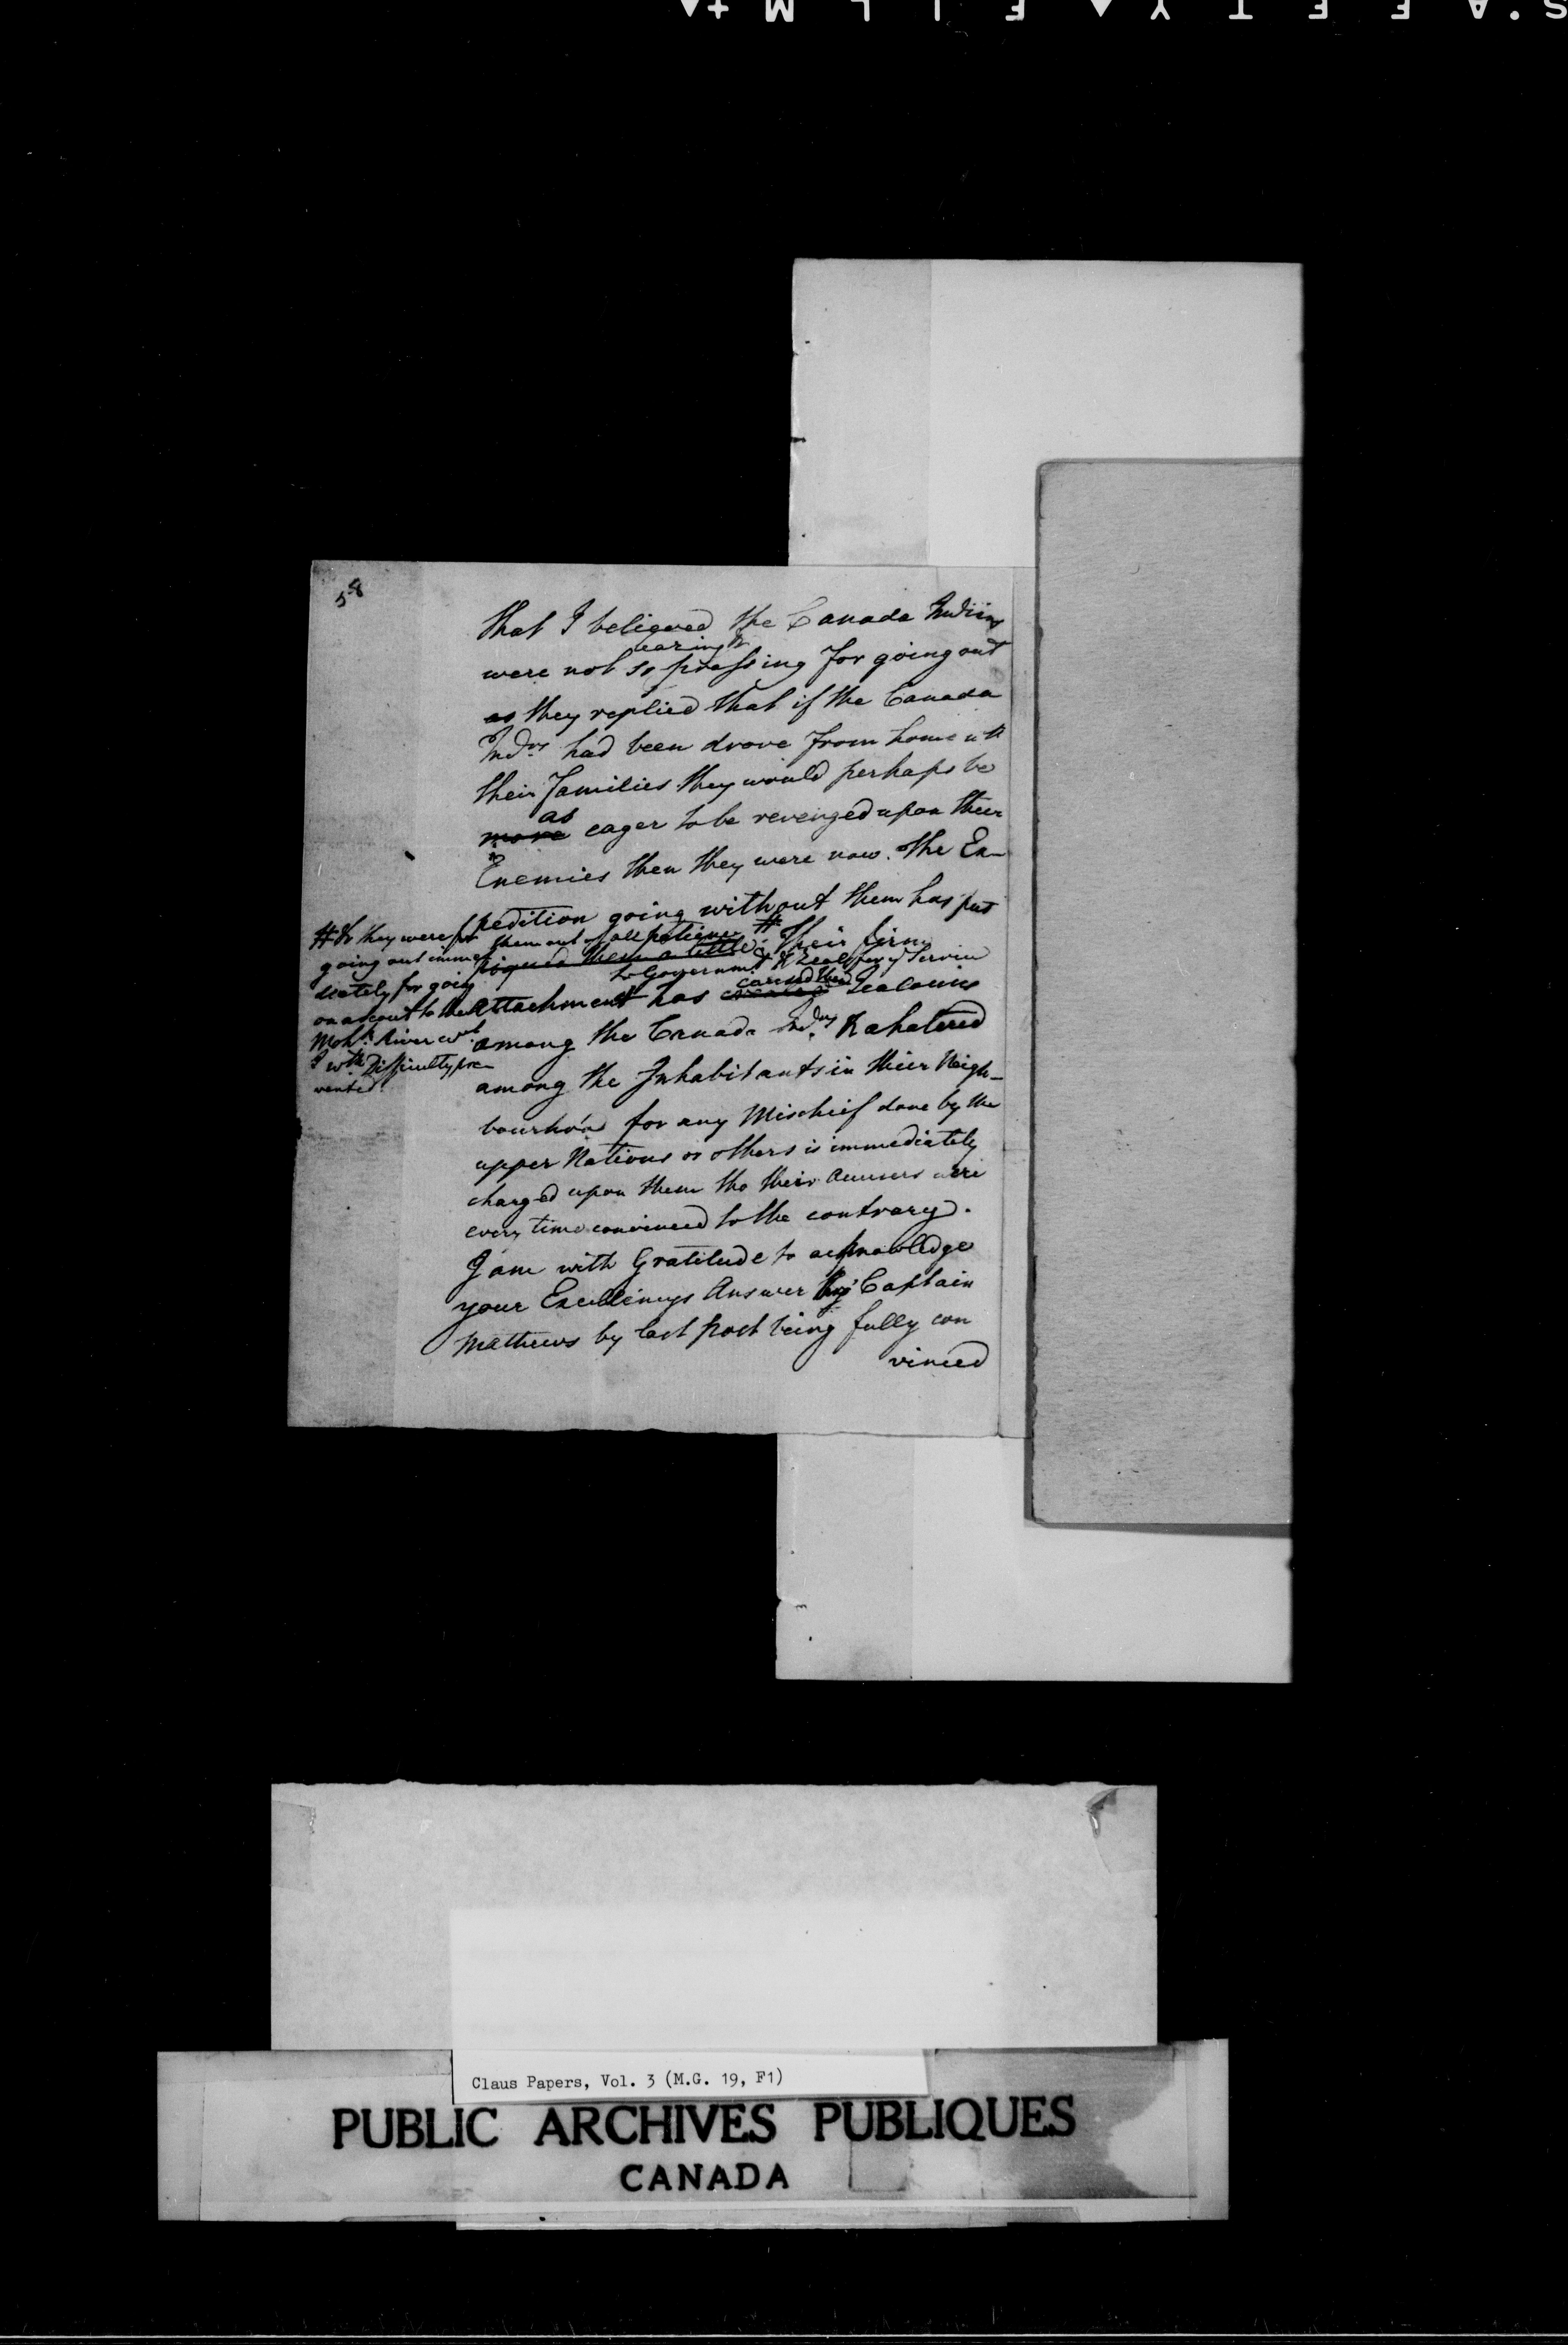 58
that I believed the Canada Indians
were not so pressing for going out
as they replied that if the Canada
Indns. had been drove from home wth
their Families they would perhaps be
as
more eager to be revenged upon their
Enemies then they were now. The Ex-
pedition going without them has put
them out of all patience #
piqued them a little; Their firm
to Governmt & Zeal for ye Service
attachment has caused them Jealousies
among the Canada Indns. & a hatered
among the Inhabitants in their Neigh-
bourhood for any Mischief done by the
upper Nations or others is immediately
charged upon them tho their Accusers were
every time convinced to the contrary.
I am with Gratitude to acknowledge
your Excellencys Answer by Captain
Mathews by last post being fully con
vinced
# & they were for
going out imme
diately for going
on a scout to the
Mohk. River wch.
I wth Difficulty pre-
vented.
Claus Papers, Vol. 3 (M.G. 19, F1)
PUBLIC ARCHIVES PUBLIQUES
CANADA